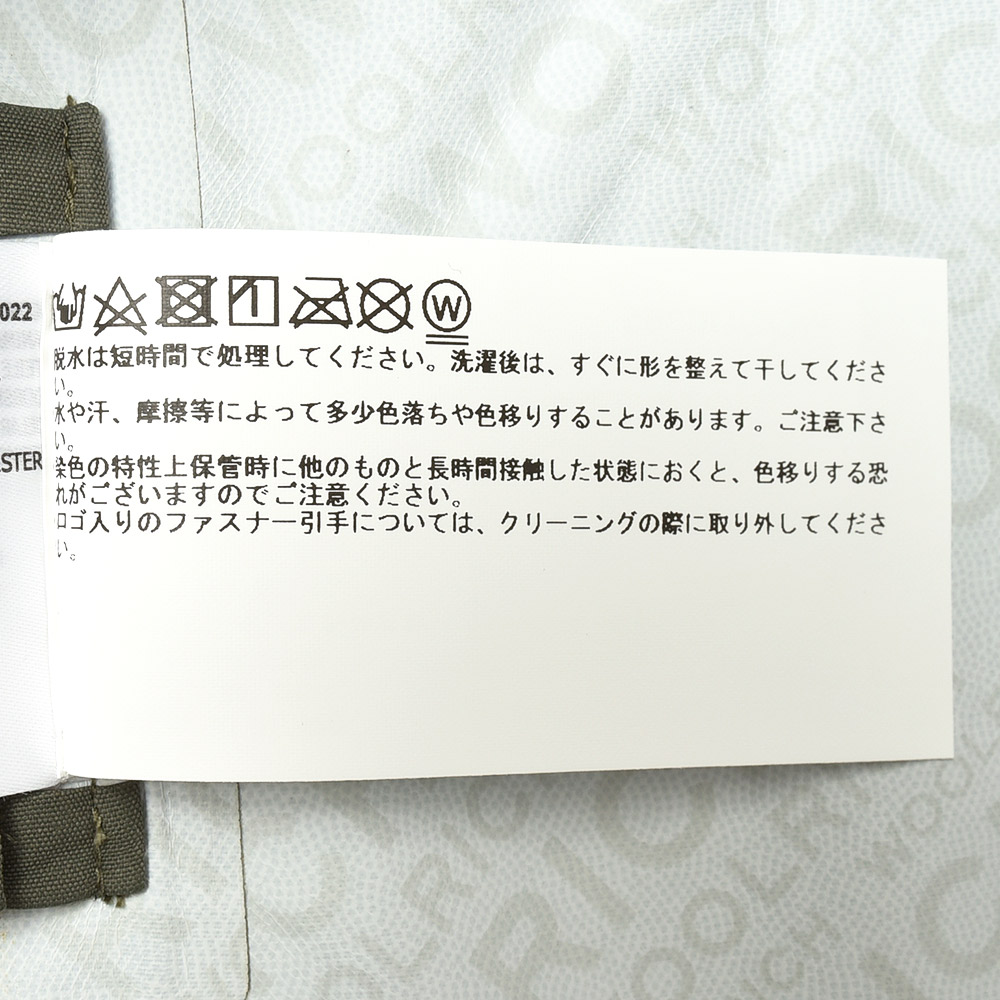 022
STER
W
脱水は短時間で処理してください。洗濯後は、すぐに形を整えて干してくださ
い。
水や汗、摩擦等によって多少色落ちや色移りすることがあります。ご注意下さ
い。
染色の特性上保管時に他のものと長時間接触した状態におくと、色移りする恐
れがございますのでご注意ください。
ロゴ入りのファスナー引手については、クリーニングの際に取り外してくださ
い。